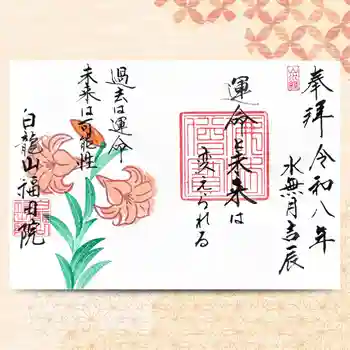 奉拝 令和八年
水無月吉辰
運命と未来は
変えられる
過去は運命
未来は可能性
白龍山福日院